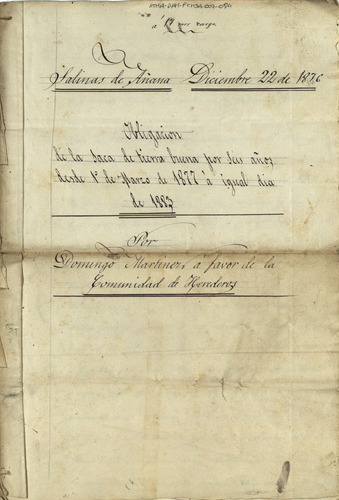 á 1º por carga
Salinas de Añana Diciembre 22 de 1876
Obligacion
de la saca de tierra buena por seis años
desde 1º de Marzo de 1877 á igual dia
de 1883
Por
Domingo Martinez, á favor de la
Comunidad de Herederos